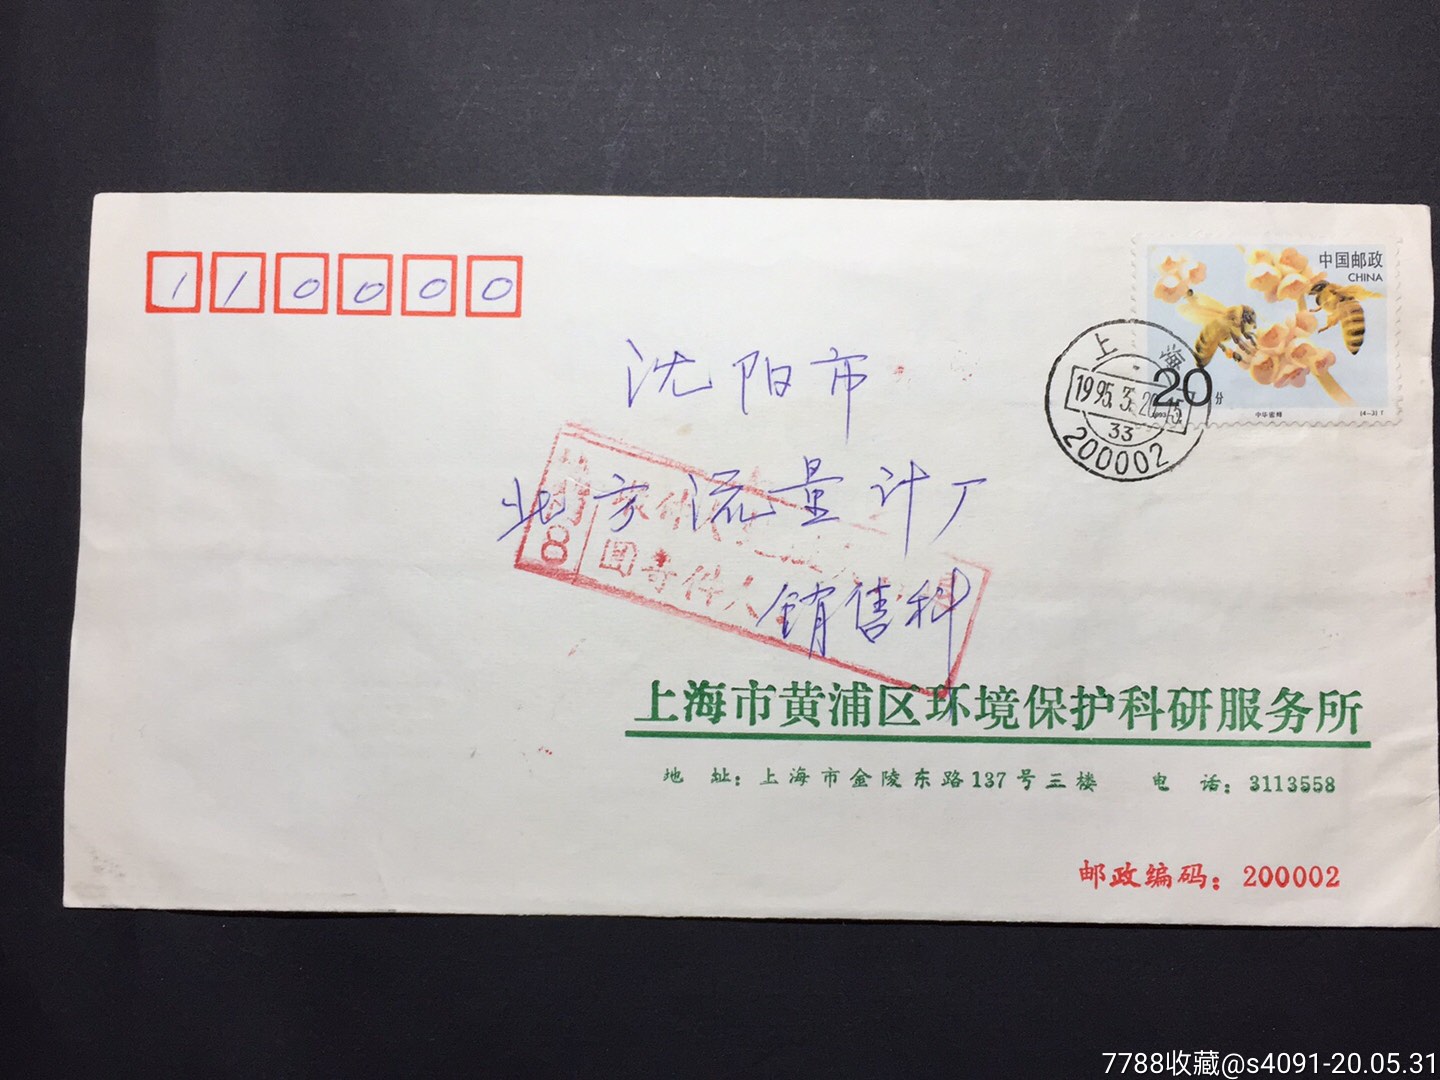 110000
中国邮政
CHINA
20分
1993
中华蜜蜂
(4-3)T
上海
1995.3.20.15
33
200002
沈阳市
北方流量计厂
销售科
圆寄件人
上海市黄浦区环境保护科研服务所
地 址：上海市金陵东路137号三楼 电 话：3113558
邮政编码：200002
7788收藏@s4091-20.05.31